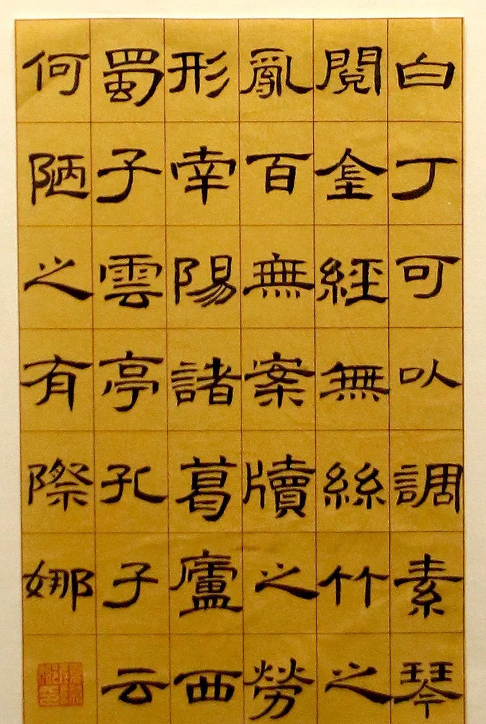 白丁可以調素琴
閱金經無絲竹之
亂耳無案牘之勞
形南陽諸葛廬西
蜀子雲亭孔子云
何陋之有際娜